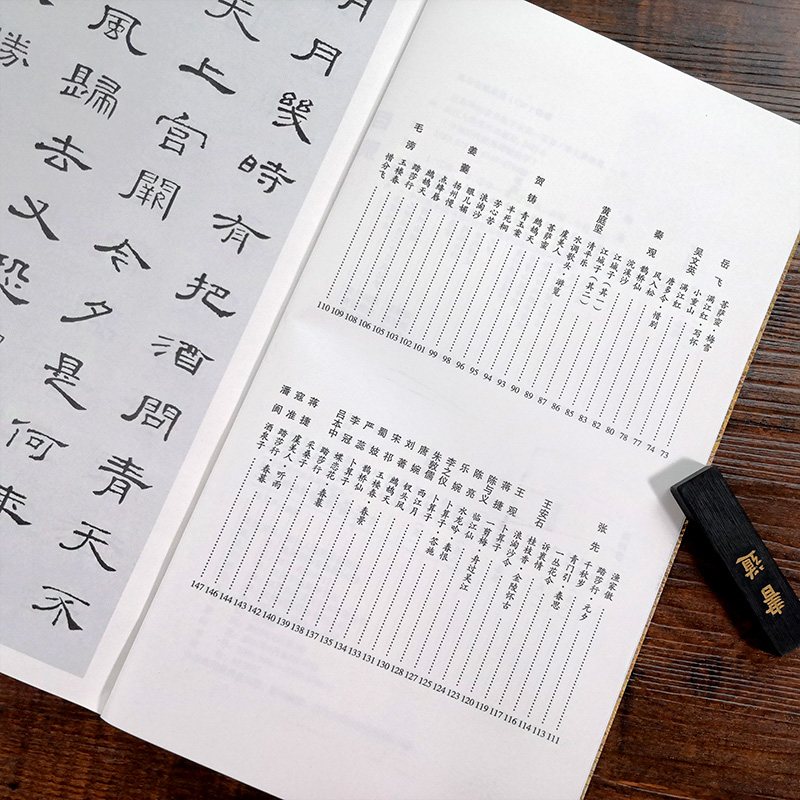 月幾時有把酒問青天不
天上宮闕今夕是何年
風歸去又恐
勝
岳飞 菩萨蛮·梅雪 73
满江红·写怀 74
小重山 77
吴文英 满江红 78
唐多令·惜别 80
风入松 82
秦观 鹊桥仙 83
浣溪沙 85
江城子(其一) 86
江城子(其二) 87
黄庭坚 清平乐 89
水调歌头·游览 90
虞美人 93
贺铸 菩萨蛮 94
鹧鸪天 95
青玉案 96
半死桐 98
芳心苦 99
浪淘沙 101
姜夔 眼儿媚 102
扬州慢 103
点绛唇 105
鹧鸪天 106
毛滂 踏莎行 108
玉楼春 109
惜分飞 110
张先 渔家傲 111
踏莎行 113
千秋岁·元夕 114
青门引·春思 116
一丛花令 117
诉衷情 119
王安石 桂枝香·金陵怀古 120
浪淘沙令 123
王观 卜算子 124
蒋捷 一剪梅·舟过吴江 125
陈与义 临江仙 127
陈亮 水龙吟·春恨 128
乐婉 卜算子·答施 130
李之仪 卜算子 131
朱敦儒 西江月 133
唐婉 钗头凤 134
刘著 鹧鸪天 135
宋祁 玉楼春·春景 137
蜀妓 鹊桥仙 138
严蕊 卜算子 139
李冠 蝶恋花·春暮 140
吕本中 踏莎行 142
采桑子 143
蒋捷 虞美人·听雨 144
寇准 踏莎行·春暮 146
潘阆 酒泉子 147
書道